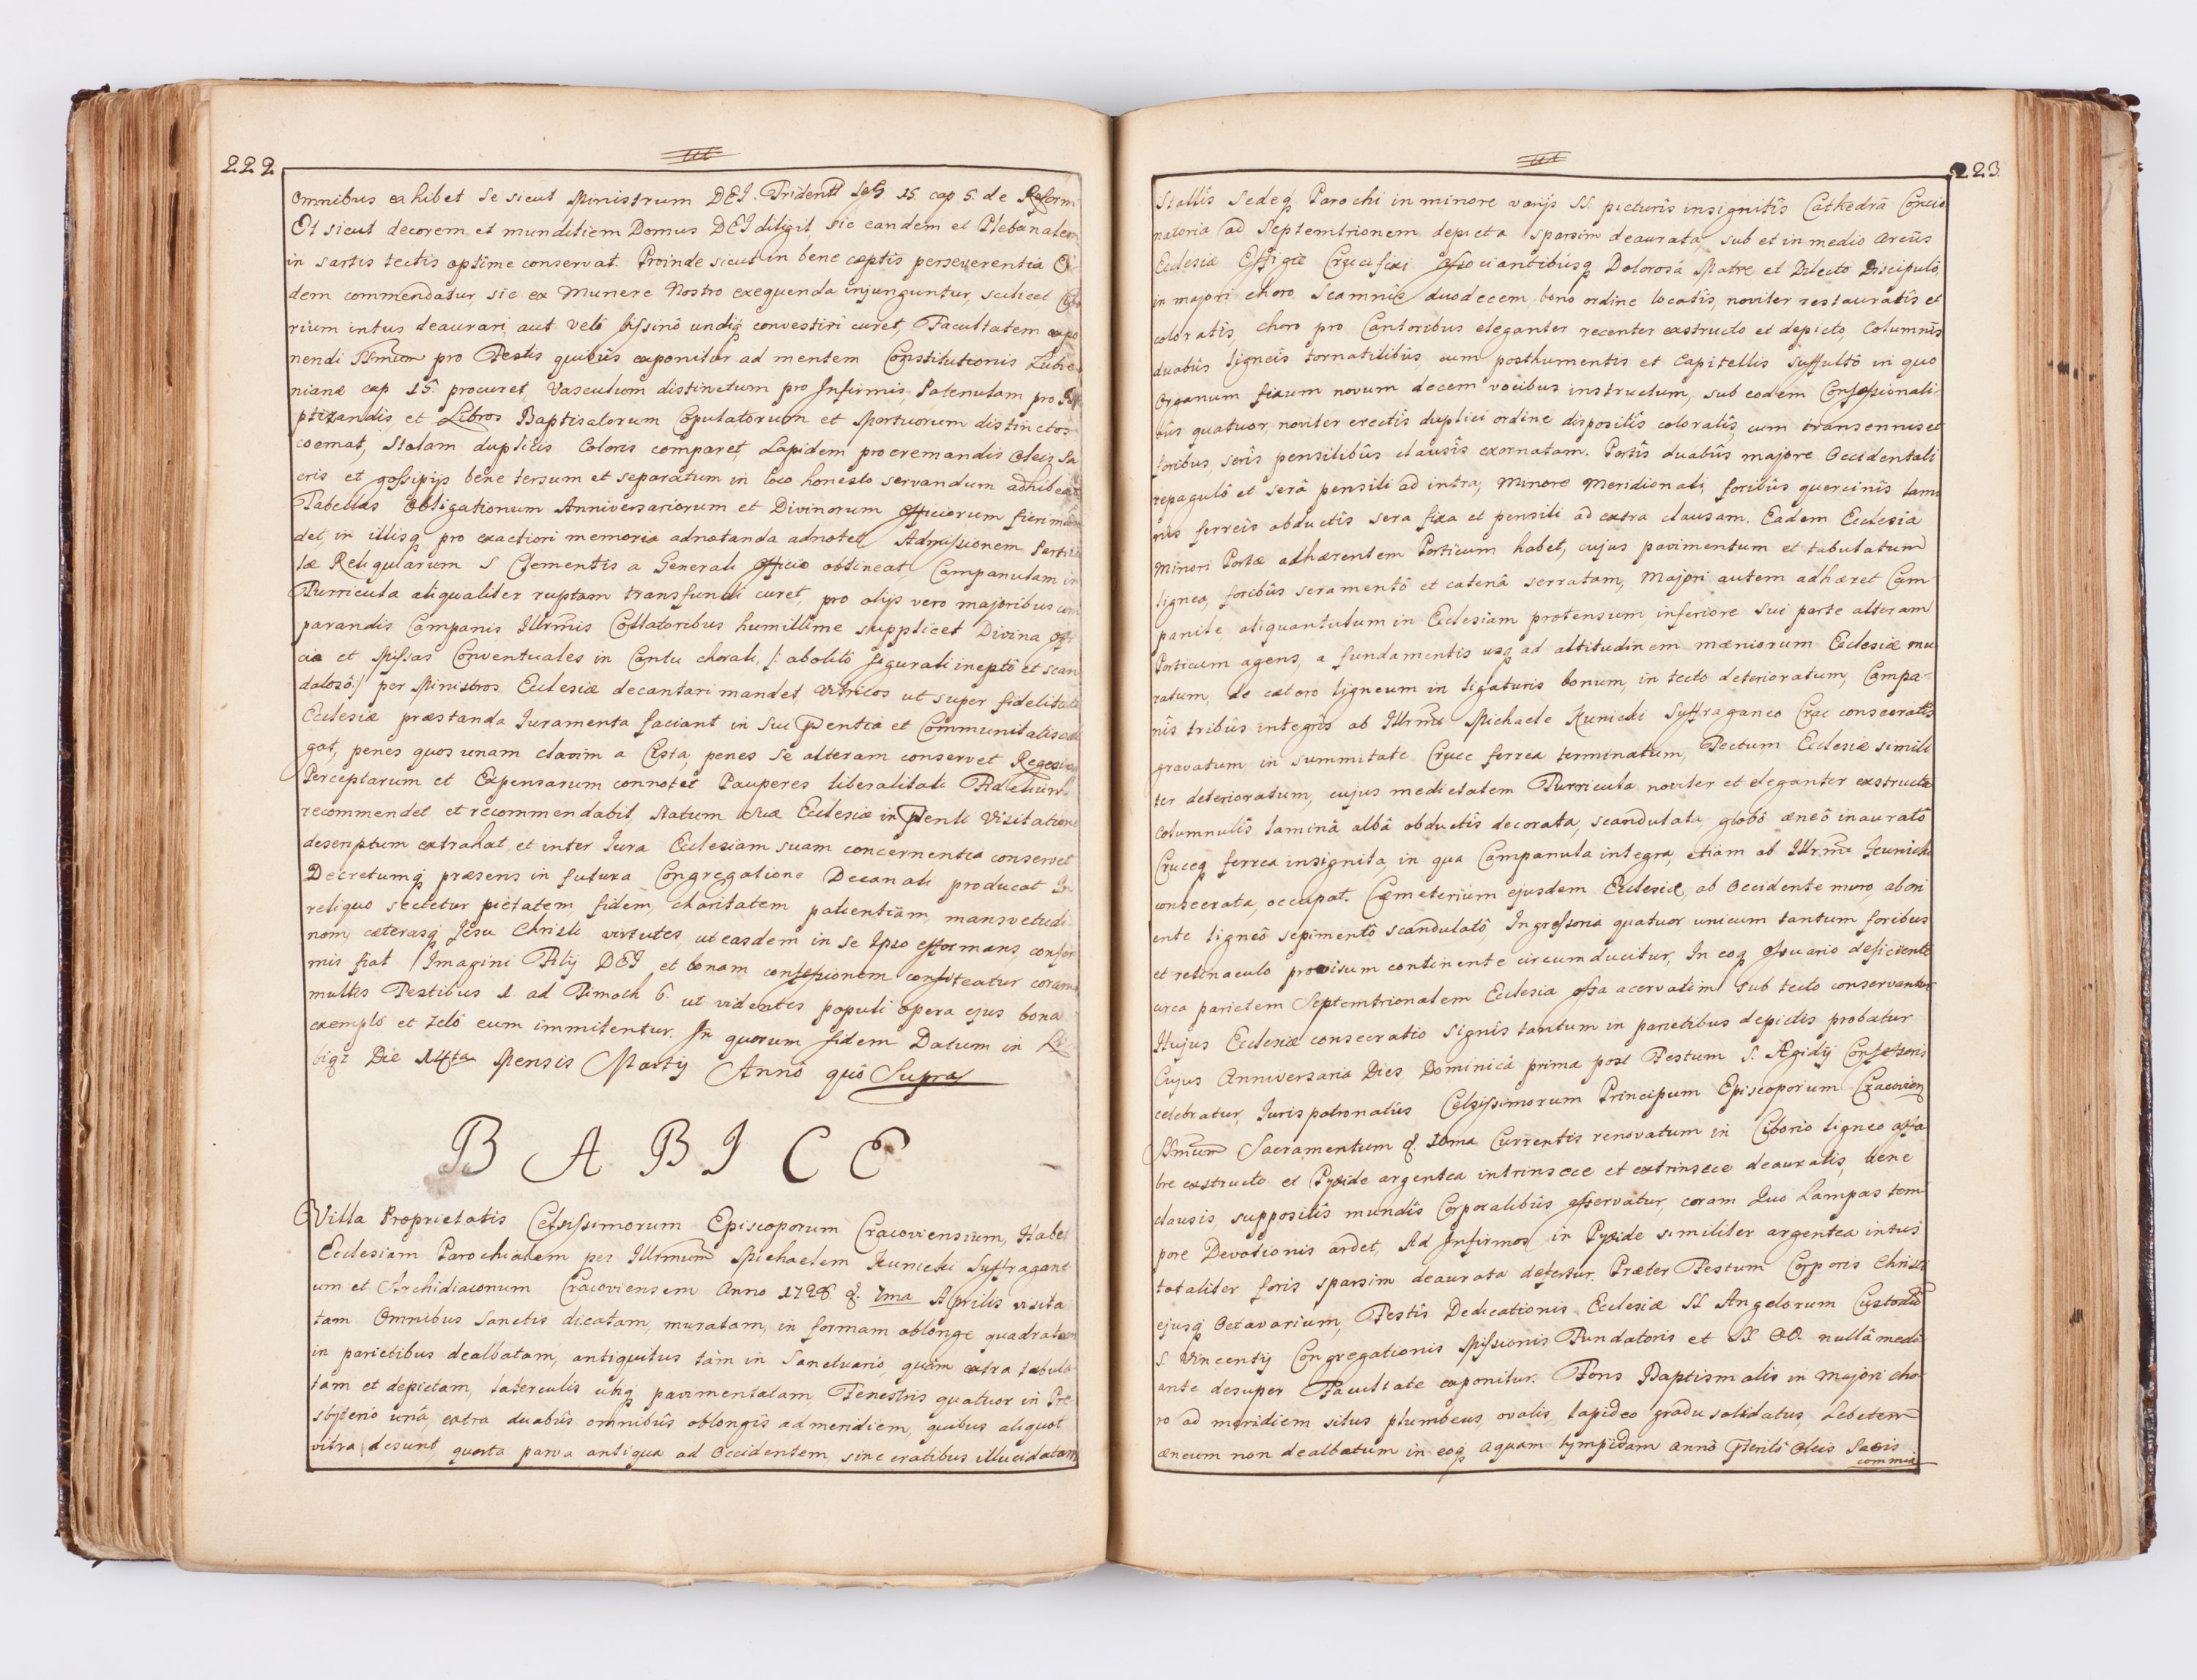 222
omnibus exhibet se sicut Ministrum DEI. Tridenti Seß. 15. cap 5. de Reform
Et sicut decorem et munditiem Domus DEI diligit, sic eandem et Plebanalem
in sartis tectis optime conservat. Proinde sicut in bene cæptis perseverentia Ei-
dem commendatur, sic ex Munere Nostro exequenda injunguntur, scilicet, Cibo
rium intus deaurari aut velô bißinô undiq convestiri curet, Facultatem expo
nendi SSmum pro Festis quibûs exponitur ad mentem Constitutionis Lubie
nianæ cap 15. procuret, Vasculum distinctum pro Infirmis, Patenulam pro Ba
ptizandis, et Libros Baptisatorum Copulatorum et Mortuorum distinctos
coemat, Stolam duplicis Coloris comparet, Lapidem pro cremandis Oleis Sa
cris et goßipijs bene tersum et separatum in loco honesto servandum adhibeat
Tabellas Obligationum Anniversariorum et Divinorum officiorum fieri man
det, in illisq pro exactiori memoria adnotanda adnotet, Admißionem Particu
læ Reliquiarum S Clementis a Generali Officio obtineat, Campanulam in
Turricula aliqualiter ruptam transfundi curet, pro alijs vero majoribus com
parandis Campanis Illrmis Collatoribus humillime supplicet Divina offi
cia et Mißas Conventuales in Cantu chorali, /: abolitô figurali ineptô et scan
dalosô:/ per Ministros Ecclesiæ decantari mandet, Vitricos ut super fidelitate
Ecclesiæ præstanda Iuramenta faciant in sui pentia et Communitatis adi
gat, penes quos unam clavim a Cista, penes se alteram conservet Regestra
Perceptarum et Expensarum connotet Pauperes liberalitati Fidelium
recommendet et recommendabit, Statum suæ Ecclesiæ in penti Visitatione
descriptum extrahat, et inter Iura Ecclesiam suam concernentia conservet
Decretumq præsens in futura Congregatione Decanali producat In
reliquo sectetur pietatem, fidem, charitatem patientiam, mansvetudi-
nem, cæterasq Jesu Christi virtutes, ut easdem in se Ipso efformans confor
mis fiat Imagini Filij DEI et bonam confeßionem confiteatur coram
multis Testibus 1. ad Timoth 6. ut videntes populi opera ejus bona
exemplô et zelô eum immitentur. In quorum fidem Datum in Li
biąż Die 14ta Mensis Martij Annô quô Supra
BABICE
Villa Proprietatis Celsißimorum Episcoporum Cracoviensium, Habet
Ecclesiam Parochialem per Illrmum Michaelem Kunicki Suffragane
um et Archidiaconum Cracoviensem Anno 1728. d. 7ma Aprilis visita
tam Omnibus Sanctis dicatam, muratam, in formam oblongæ quadratam
in parietibus dealbatam, antiquitus tàm in Sanctuario, quàm extra tabula
tam et depictam, laterculis utiq pavimentatam, Fenestris quatuor in Pre
sbyterio unâ, extra duabûs omnibûs oblongîs ad meridiem, quibus aliquot
vitra desunt, quarta parva antiqua ad Occidentem, sine cratibus illucidatam
223
Stallis Sedeq Parochi in minore varijs SS. picturîs insignitîs Cathedrâ Concio
natoria ad Septemtrionem depicta sparsim deaurata, sub et in medio Arcûs
Ecclesiæ Effigie Crucifixi aßociantibusq Dolorosâ Matre et Dilecto Discipulô,
in majori choro Scamnîs duodecem bono ordine locatîs, noviter restauratîs et
coloratîs, choro pro Cantoribus eleganter recenter exstructo et depicto, Columnîs
duabûs ligneîs tornatilibûs, cum posthumentis et Capitellis suffultô in quo
Organum fixum novum decem vocibus instructum, sub eodem Confeßionali-
bûs quatuor, noviter erectîs duplici ordine dispositîs coloratîs, cum transennis et
foribus, serîs pensilibûs clausîs exornatam. Portîs duabûs majore Occidentali
repagulô et serâ pensili ad intra, Minore Meridionali, foribûs quercinîs lami
nîs ferreis obductîs sera fixa et pensili ad extra clausam. Eadem Ecclesia
minori Portæ adhærentem Porticum habet, cujus pavimentum et tabulatum
lignea, foribûs seramentô et catenâ serratam, Majori autem adhæret Cam-
panile, aliquantulum in Ecclesiam protensum, inferiore sui parte alteram
Porticum agens, a fundamentis usq ad altitudinem mæniorum Ecclesiæ mu
ratum, de cætero ligneum in ligaturis bonum, in tecto deterioratum, Campa-
nîs tribûs integrîs ab Illrmo Michaele Kunicki Suffraganeo Crac consecratîs
gravatum in summitate Cruce ferrea terminatum, Tectum Ecclesiæ simili
ter deterioratum, cujus medietatem Turricula noviter et eleganter exstructa
Columnulîs laminâ albâ obductîs decorata, scandulata, globô æneô inauratô
Cruceq ferrea insignita, in qua Campanula integra, etiam ab Illrmo Kunicki
consecrata, occupat. Cæmeterium ejusdem Ecclesiæ, ab Occidente muro, ab ori
ente ligneô sepimentô scandulatô, Ingreßoria quatuor unicum tantum foribus
et retinaculo provisum continente circumducitur, In eoq oßuario deficiente
circa parietem Septemtrionalem Ecclesiæ oßa acervatim sub tecto conservantur
Hujus Ecclesiæ consecratio signîs tantum in parietibus depictis probatur
Cujus Anniversaria Dies, Dominicâ prima post Festum S. Ægidij Confeßoris
celebratur, Iurispatronatûs Celsißimorum Principum Episcoporum Cracovien
SSmum Sacramentum d. 10ma Currentis renovatum in Ciborio ligneo affa
bre exstructo et Pyxide argentea intrinsece et extrinsece deauratis, bene
clausis, suppositîs mundîs Corporalibûs aßervatur, coram quo Lampas tem
pore Devotionis ardet, Ad Infirmos in Pyxide similiter argentea intus
totaliter foris sparsim deaurata defertur. Præter Festum Corporis Christi
ejusq Octavarium, Festîs Dedicationis Ecclesiæ SS Angelorum Custodum
S. Vincentij Congregationis Mißionis Fundatoris et SS. OO. nullâ medi
ante desuper Facultate exponitur. Fons Baptismalis in Majori cho
ro ad meridiem situs plumbeus, ovalis, lapideo gradu solidatus, Lebetem
æneum non dealbatum in eoq aquam lympidam annô pteritô Oleis Sacris
commix